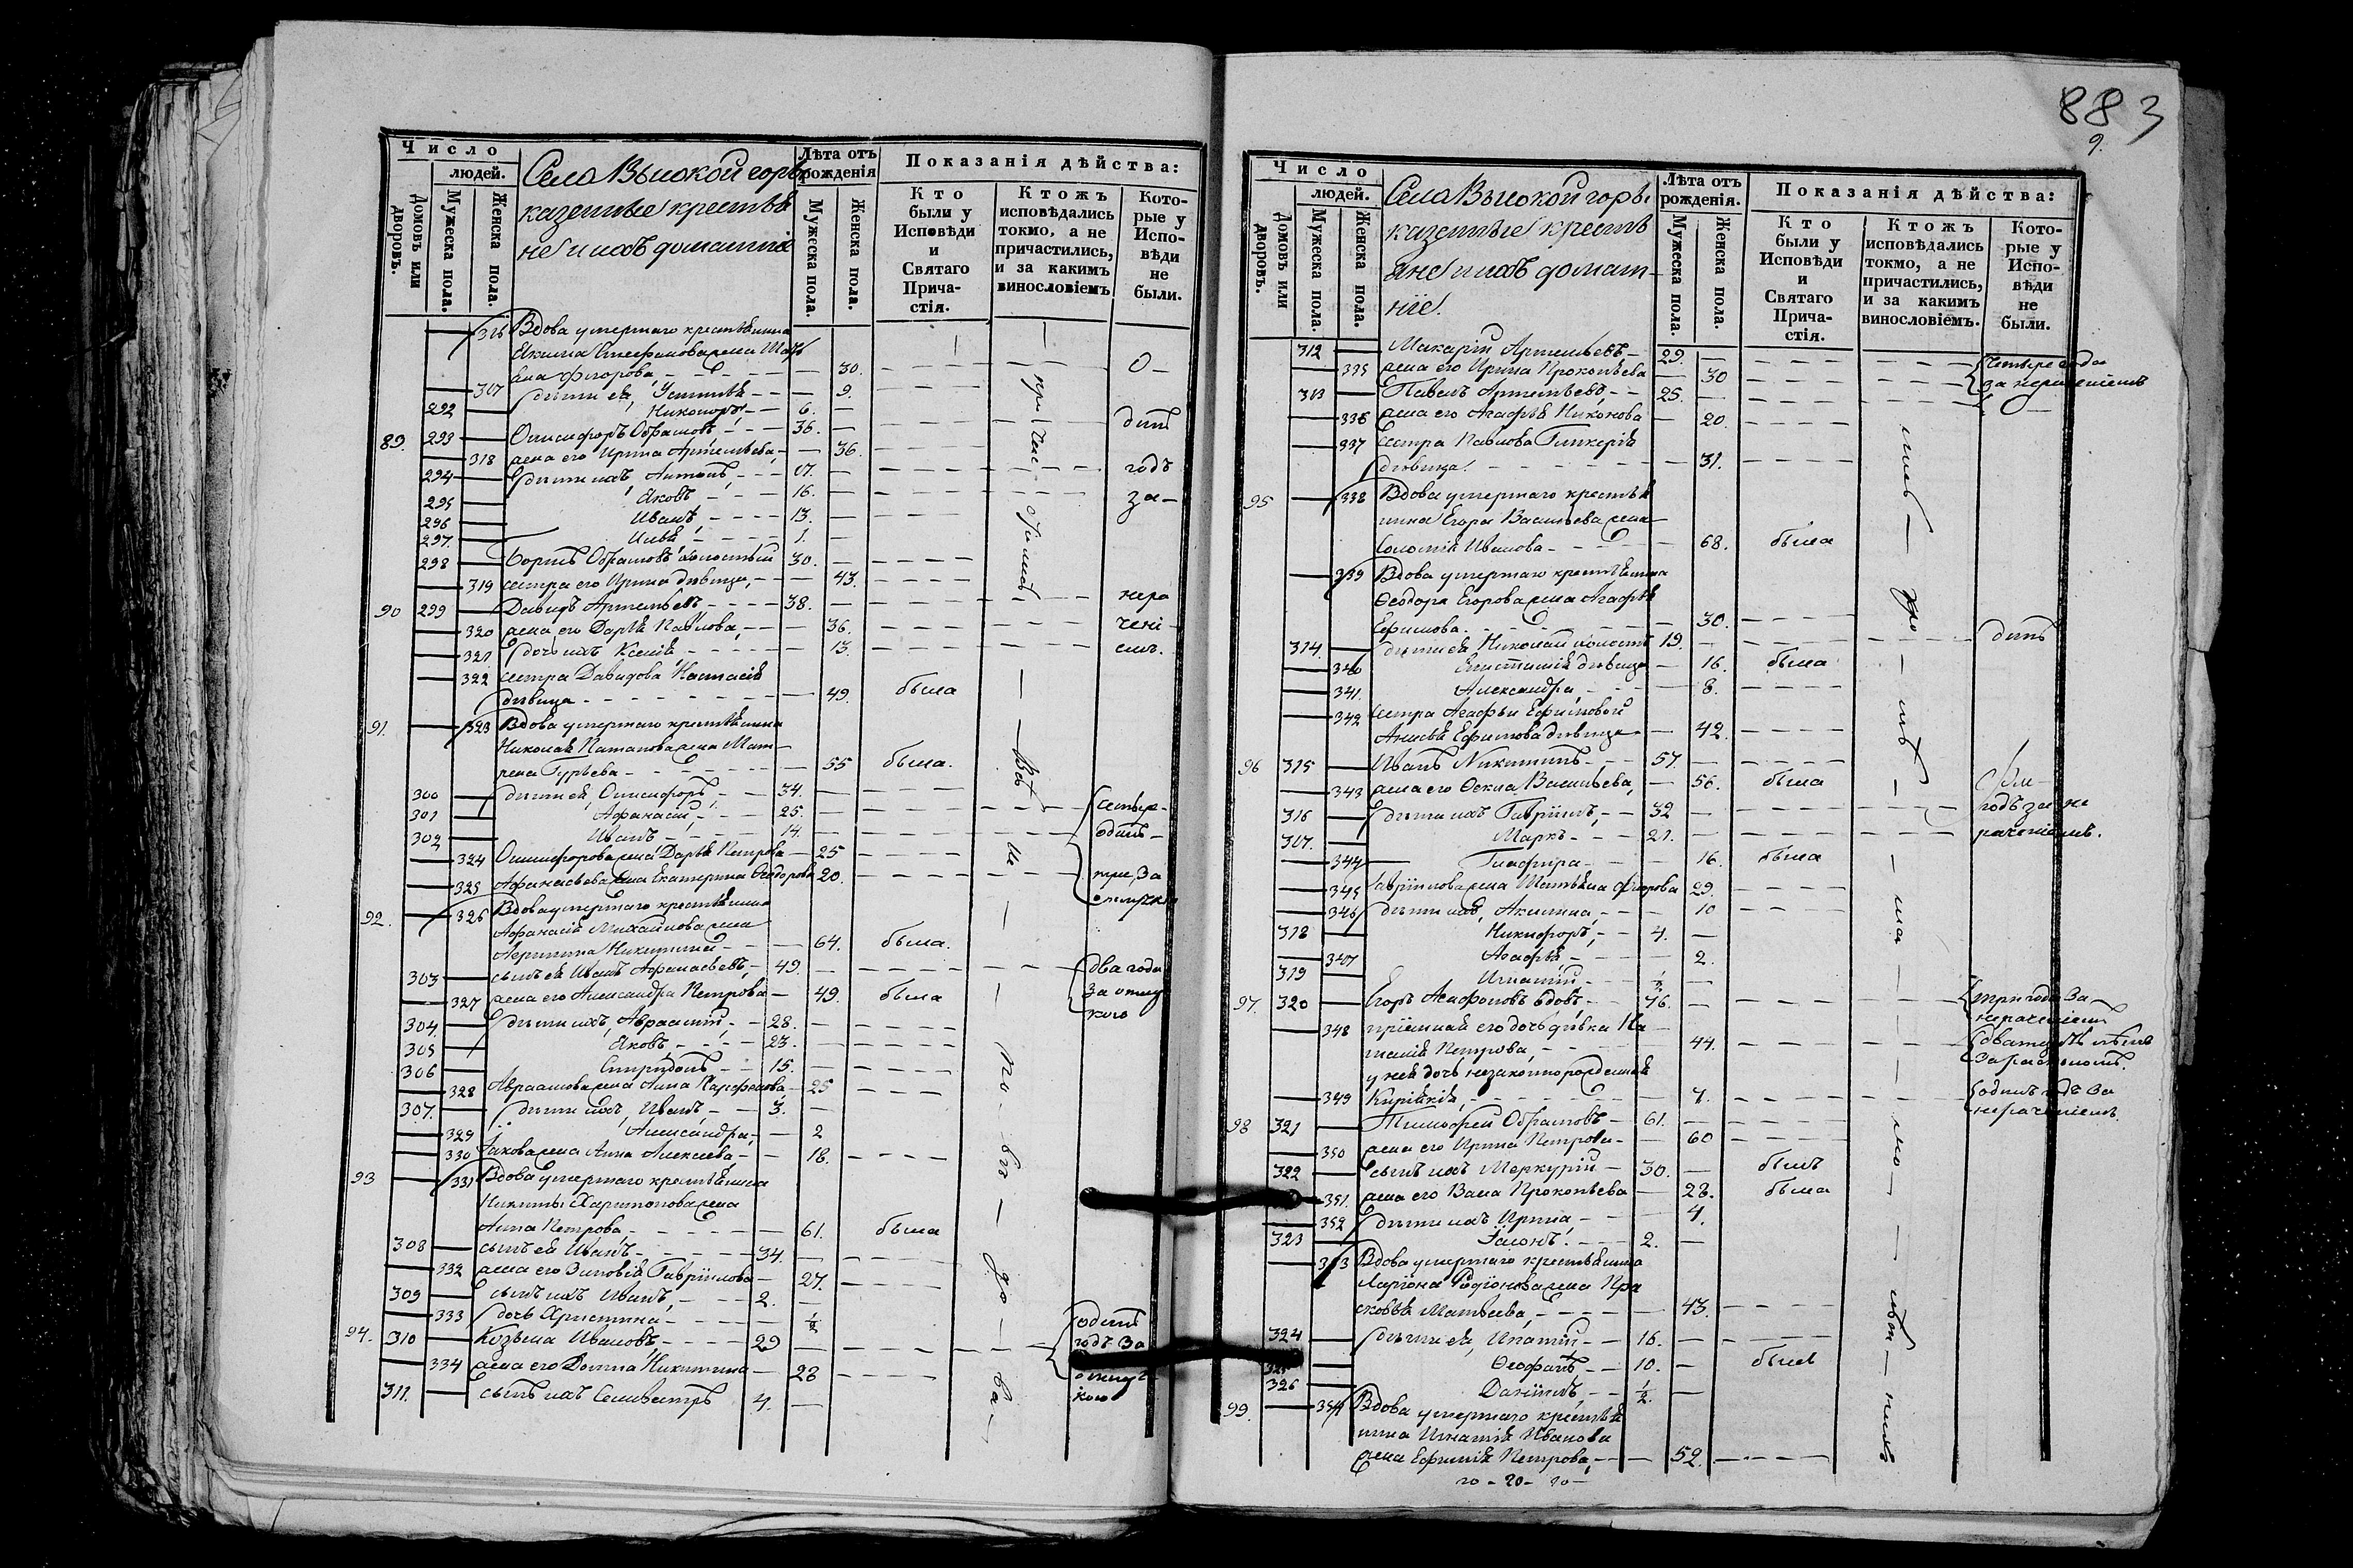 Число
людей.
Домовъ или дворовъ.
Мужеска пола.
Женска пола.
Села Высокой горы
казенные крестья
не и ихъ домашнiе
Лѣта отъ рожденiя
Мужеска пола.
Женска пола.
Показанiя дѣйства:
Кто были у Исповѣди и Святаго Прича-стiя.
Ктожъ исповѣдались токмо, а не причастились, и за какимъ винословiемъ
Кото-рые у Испо-вѣди не были.
316 Вдова умершаго крестьянина
Якима Стефанова жена
Флорова 30.
317 дѣти ея, Устинья 9.
292 Никаноръ 6.
89. 293 Онисифоръ Обрамовъ 36.
318 жена его Ирина Артемьева, 36.
294 дѣти ихъ Антонъ, 17.
295 Яковъ 16.
296 Иванъ, 13.
297. Илья, 1.
298 Борисъ Обрамовъ холостый 30.
319 сестра его Ирина дѣвица, 43.
90 299 Давидъ Артемьевъ 38.
320 жена его Дарья Павлова, 36.
321 дочь ихъ Ксенiя 13.
322 сестра Давидова Настасiя
дѣвица 49. была
91. 323 Вдова умершаго крестьянина
Николая Патапова жена Мат-
рена Гурьева 55 была.
300 дѣти ея, Онисифоръ, 34.
301 Афанасiй, 25.
302 Иванъ 14.
324 Онисифорова жена Дарья Петрова 25
325 Афанасьева жена Екатерина Ѳеодорова 20.
92. 326 Вдова умершаго крестьянина
Афанасiя Михайлова жена
Никитина 64. была.
303 сынъ ея Иванъ Афанасьевъ, 49. два года
327 жена его Александра Петрова 49. была за отлуч
кою
304. дѣти ихъ, Авраамiй, 28.
305 Яковъ, 23.
306 Спиридонъ 15.
328 Авраамова жена Анна Парфенова, 25
307. дѣти ихъ, Иванъ, 3.
329 Александра, 2
330 Якова жена Анна Алексеева 18.
93 331 Вдова умершаго крестьянина
Никиты Харитонова жена
Анна Петрова, 61. была
308 сынъ ея Иванъ 34.
332 жена его Зиновiя Гаврiилова 27.
309 сынъ ихъ Иванъ, 2.
333 дочь Христина ½
94. 310 Козьма Ивановъ, 29 одинъ годъ за
334 жена его Домна Никитина 28 отлуч
кою
311. сынъ ихъ Селивестръ 4.
883
9.
Число
людей.
Домовъ или дворовъ.
Мужеска пола.
Женска пола.
Села Высокой горы
казенные кресть
яне и ихъ домаш-
нiе.
Лѣта отъ рожденiя.
Мужеска пола.
Женска пола.
Показанiя дѣйства:
Кто были у Исповѣди и Святаго Прича-стiя.
Ктожъ исповѣдались токмо, а не причастились, и за какимъ винословiемъ.
Кото-рые у Испо-вѣди не были.
312 Макарiй Артемьевъ, 29. Четыре года
335 жена его Ирина Прокопьева 30 за нераченiемъ
313 Павелъ Артемьевъ, 25.
336 жена его Агафья Никонова 20.
337 сестра Павлова Гликерiя
дѣвица. 31.
95 338 Вдова умершаго крестья
нина Егора Васильева жена
Соломiя Иванова 68. была
339 Вдова умершаго крестьянина
Ѳеодора Егорова жена Агафья
Ефимова. 30.
314. дѣти ея, Николай холостъ 19.
340 дѣвица 16. была
341. Александра, 8.
342 сестра Агафьи Ефимовой
Анисья Ефимова дѣвица 42.
96 315 Иванъ Никитинъ, 57.
343 жена его Ѳекла Васильева, 56. была
316 дѣти ихъ Гаврiилъ, 32 годъ за не
307. Маркъ 21. раченiемъ.
344 Глафира 16. была
345 Гаврiилова жена Флорова 29.
346 дѣти ихъ, Акилина, 10
318 Никифоръ, 4.
347 Агафья 2.
319 Игнатiй ½
97. 320 Егоръ Агафоновъ вдовъ, 76. три года за
нераченiемъ
348 прiемная его дочь дѣвка На
талiя Петрова, 44. двадцать лѣтъ
за расколомъ.
у нея дочь незаконнорожденная
349 Кирiакiя, 7. одинъ годъ за
нераченiемъ
98 321 Тимофей Обрамовъ 61.
350 жена его Ирина Петрова 60
322 сынъ ихъ Меркурiй 30. былъ
351. жена его Васса Прокопьева 28. была
352 дѣти ихъ Ирина 4.
323 2.
353 Вдова умершаго крестьянина
Ларiона Родiонова жена Пра
сковья Матвеева, 43.
324 дѣти ея, Ипатiй, 16.
325 Ѳеофанъ 10. былъ
326 Данiилъ, ½.
99. 354 Вдова умершаго крестья
нина Игнатiя Иванова
жена Ефимiя Петрова, 52.